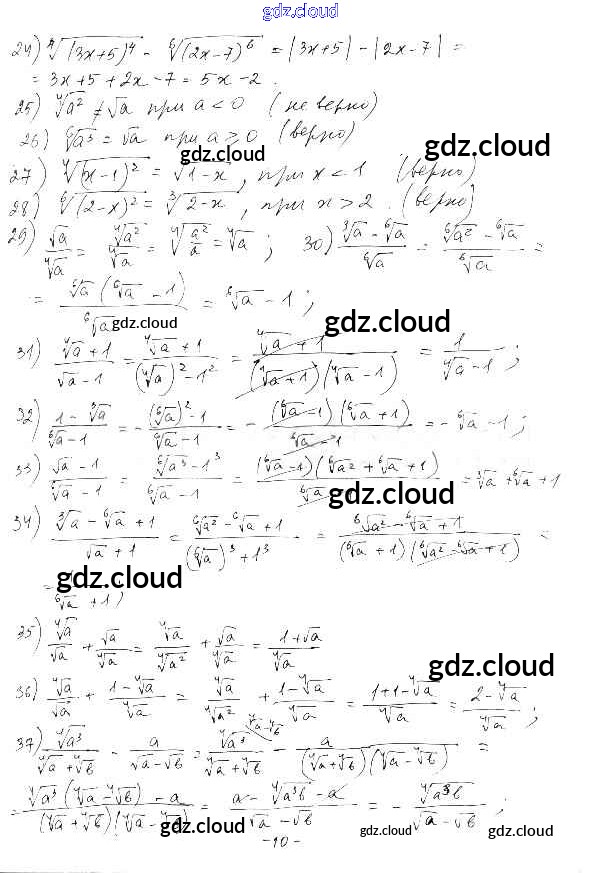 gdz.cloud
24) ⁴√(3x+5)⁴ - ⁶√(2x-7)⁶ = |3x+5| - |2x-7| =
= 3x+5+2x-7 = 5x-2.
25) ⁴√a² ≠ √a при a<0 (не верно)
26) ⁶√a³ = √a при a≥0 (верно)
gdz.cloud
27) ⁴√(x-1)² = √1-x, при x<1 (верно)
gdz.cloud
28) ⁶√(2-x)² = ³√2-x, при x>2. (верно)
gdz.cloud
29) √a/⁴√a = ⁴√a²/⁴√a = ⁴√(a²/a) = ⁴√a; 30) (³√a - ⁶√a)/⁶√a = (⁶√a² - ⁶√a)/⁶√a =
= ⁶√a(⁶√a - 1)/⁶√a = ⁶√a - 1;
gdz.cloud
gdz.cloud
31) (⁴√a+1)/(√a-1) = (⁴√a+1)/((⁴√a)²-1²) = (⁴√a+1)/((⁴√a+1)(⁴√a-1)) = 1/(⁴√a-1);
gdz.cloud
32) (1-³√a)/(⁶√a-1) = -((⁶√a)²-1)/(⁶√a-1) = -((⁶√a-1)(⁶√a+1))/(⁶√a-1) = -⁶√a-1;
33) (√a-1)/(⁶√a-1) = (⁶√a³-1³)/(⁶√a-1) = ((⁶√a-1)(⁶√a²+⁶√a+1))/(⁶√a = ³√a+⁶√a+1
gdz.cloud
34) (³√a-⁶√a+1)/(√a+1) = (⁶√a²-⁶√a+1)/((⁶√a)³+1³) = (⁶√a²-⁶√a+1)/((⁶√a+1)(⁶√a²-⁶√a+1)) =
gdz.cloud
gdz.cloud
⁶√a+1)
35) ⁴√a/√a + √a/⁴√a = ⁴√a/⁴√a² + √a/⁴√a = (1+√a)/⁴√a
gdz.cloud
36) ⁴√a/√a + (1-⁴√a)/⁴√a = ⁴√a/⁴√a² + (1-⁴√a)/⁴√a = (1+1-⁴√a)/⁴√a = (2-⁴√a)/⁴√a;
37) ⁴√a³/(⁴√a+⁴√b) - a/(√a-√b) = ⁴√a³/(⁴√a+⁴√b) - a/((⁴√a+⁴√b)(⁴√a-⁴√b)) =
= (⁴√a³(⁴√a-⁴√b)-a)/((⁴√a+⁴√b)(⁴√a-⁴√b)) = (a-⁴√a³b-a)/(√a-√b) = -⁴√a³b/(√a-√b);
gdz.cloud
gdz.cloud
gdz.cloud
-10-